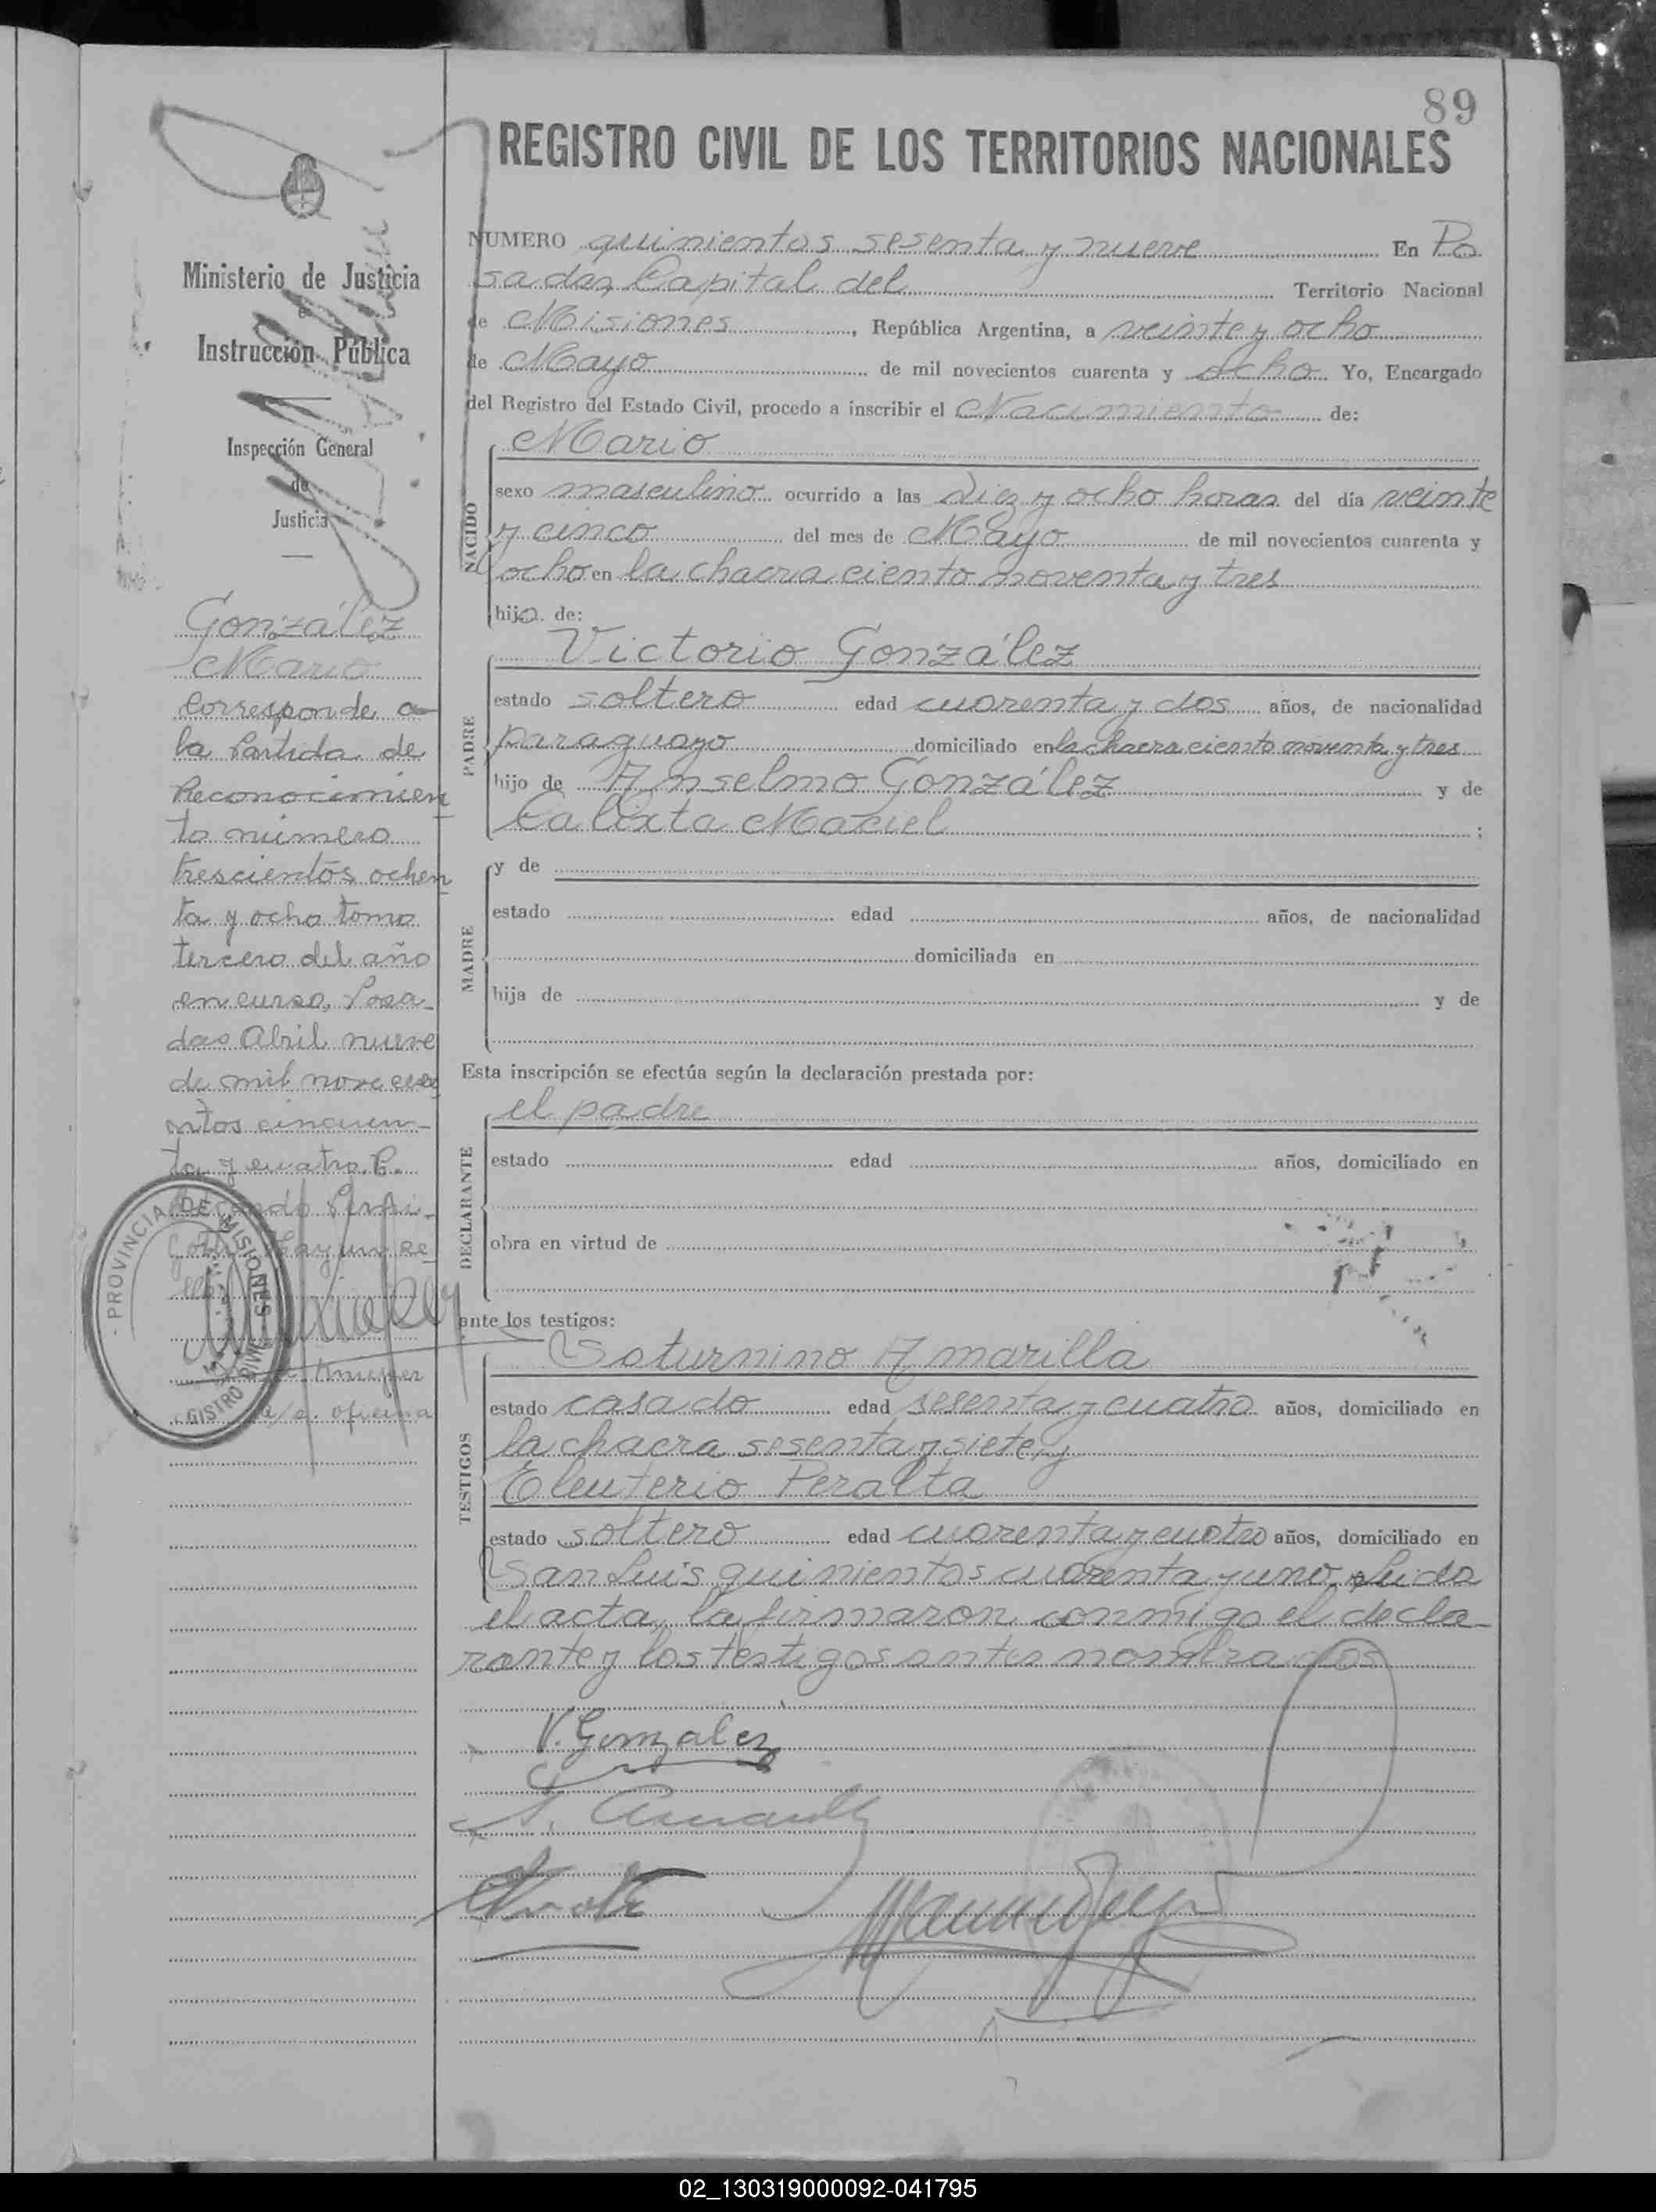 89
REGISTRO CIVIL DE LOS TERRITORIOS NACIONALES
Ministerio de Justicia
e
Instrucción Pública
Inspección General
de
Justicia
González
Mario
Corresponde a
la Partida de
Reconocimien
to número
trescientos ochen
ta y ocho tomo
tercero del año
en curso, Posa-
das Abril nueve
de mil novecie
ntos cincuen-
ta y cuatro.
PROVINCIA DE MISIONES
GISTRO CIVIL
a/c. oficina
NUMERO quinientos sesenta y nueve En Po
sadas, Capital del Territorio Nacional
de Misiones, República Argentina, a veinte y ocho
de Mayo de mil novecientos cuarenta y ocho Yo, Encargado
del Registro del Estado Civil, procedo a inscribir el Nacimiento de:
NACIDO
Mario
sexo masculino ocurrido a las diez y ocho horas del día veinte
y cinco del mes de Mayo de mil novecientos cuarenta y
ocho en la chacra ciento noventa y tres
hijo de:
PADRE
Victorio González
estado soltero edad cuarenta y dos años, de nacionalidad
paraguayo domiciliado en la chacra ciento noventa y tres
hijo de Anselmo González y de
Calixta Maciel ;
MADRE
y de
estado edad años, de nacionalidad
domiciliada en
hija de y de
Esta inscripción se efectúa según la declaración prestada por:
DECLARANTE
el padre
estado edad años, domiciliado en
obra en virtud de
ante los testigos:
TESTIGOS
Saturnino Amarilla
estado casado edad sesenta y cuatro años, domiciliado en
la chacra sesenta y siete y
Eleuterio Peralta
estado soltero edad cuarenta y cuatro años, domiciliado en
San Luis quinientos cuarenta y uno. Leída
el acta, la firmaron conmigo el decla-
rante y los testigos antes nombrados
V. Gonzalez
02_130319000092-041795